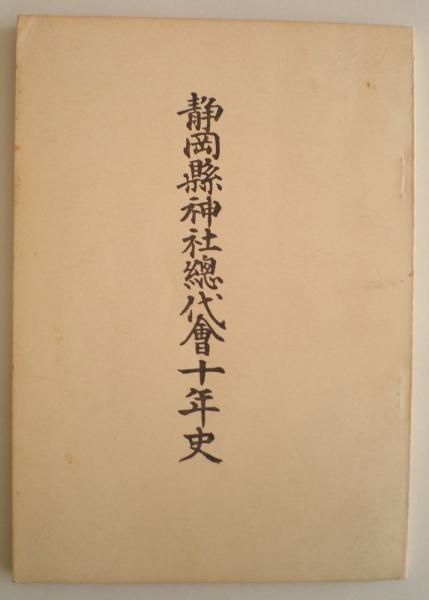 静岡縣神社總代會十年史